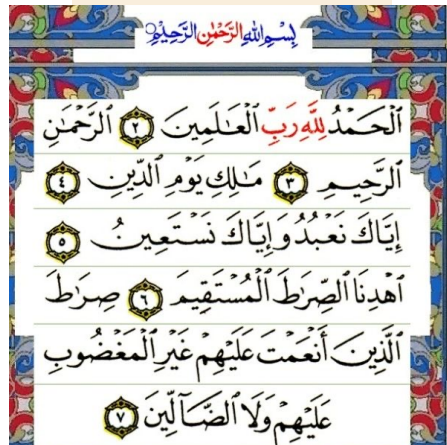 بِسْمِ اللهِ الرَّحْمٰنِ الرَّحِيْمِ
ٱلْحَمْدُ لِلَّهِ رَبِّ ٱلْعَٰلَمِينَ ٢ ٱلرَّحْمَٰنِ
ٱلرَّحِيمِ ٣ مَٰلِكِ يَوْمِ ٱلدِّينِ ٤
إِيَّاكَ نَعْبُدُ وَإِيَّاكَ نَسْتَعِينُ ٥
ٱهْدِنَا ٱلصِّرَٰطَ ٱلْمُسْتَقِيمَ ٦ صِرَٰطَ
ٱلَّذِينَ أَنْعَمْتَ عَلَيْهِمْ غَيْرِ ٱلْمَغْضُوبِ
عَلَيْهِمْ وَلَا ٱلضَّآلِّينَ ٧